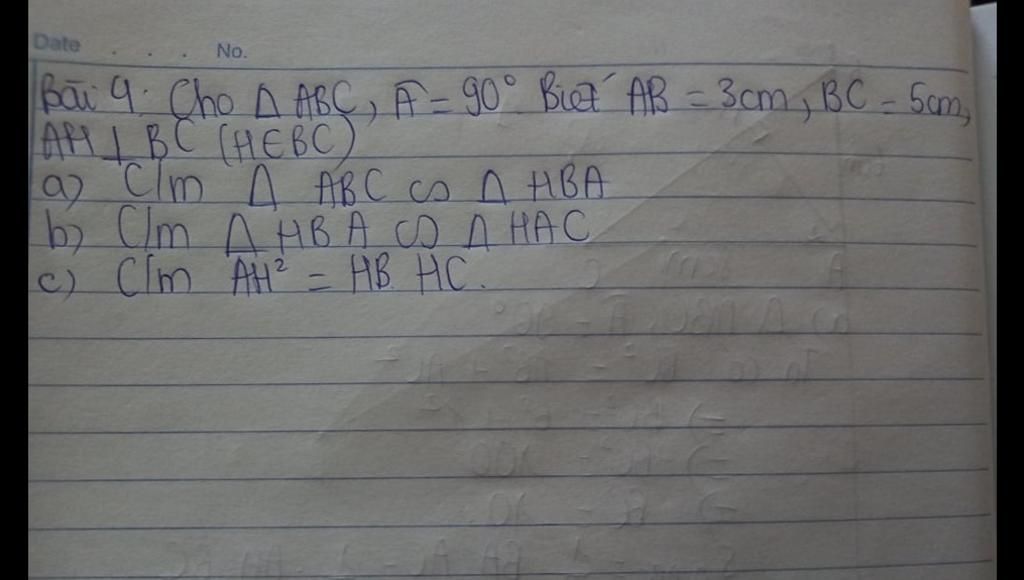 Date . . . . No.
Bài 9: Cho Δ ABC, A = 90° Biết AB = 3cm, BC = 5cm,
AH ⊥ BC (H∈BC)
a) C/m Δ ABC ∽ Δ HBA
b) C/m Δ HBA ∽ Δ HAC
c) C/m AH² = HB. HC.